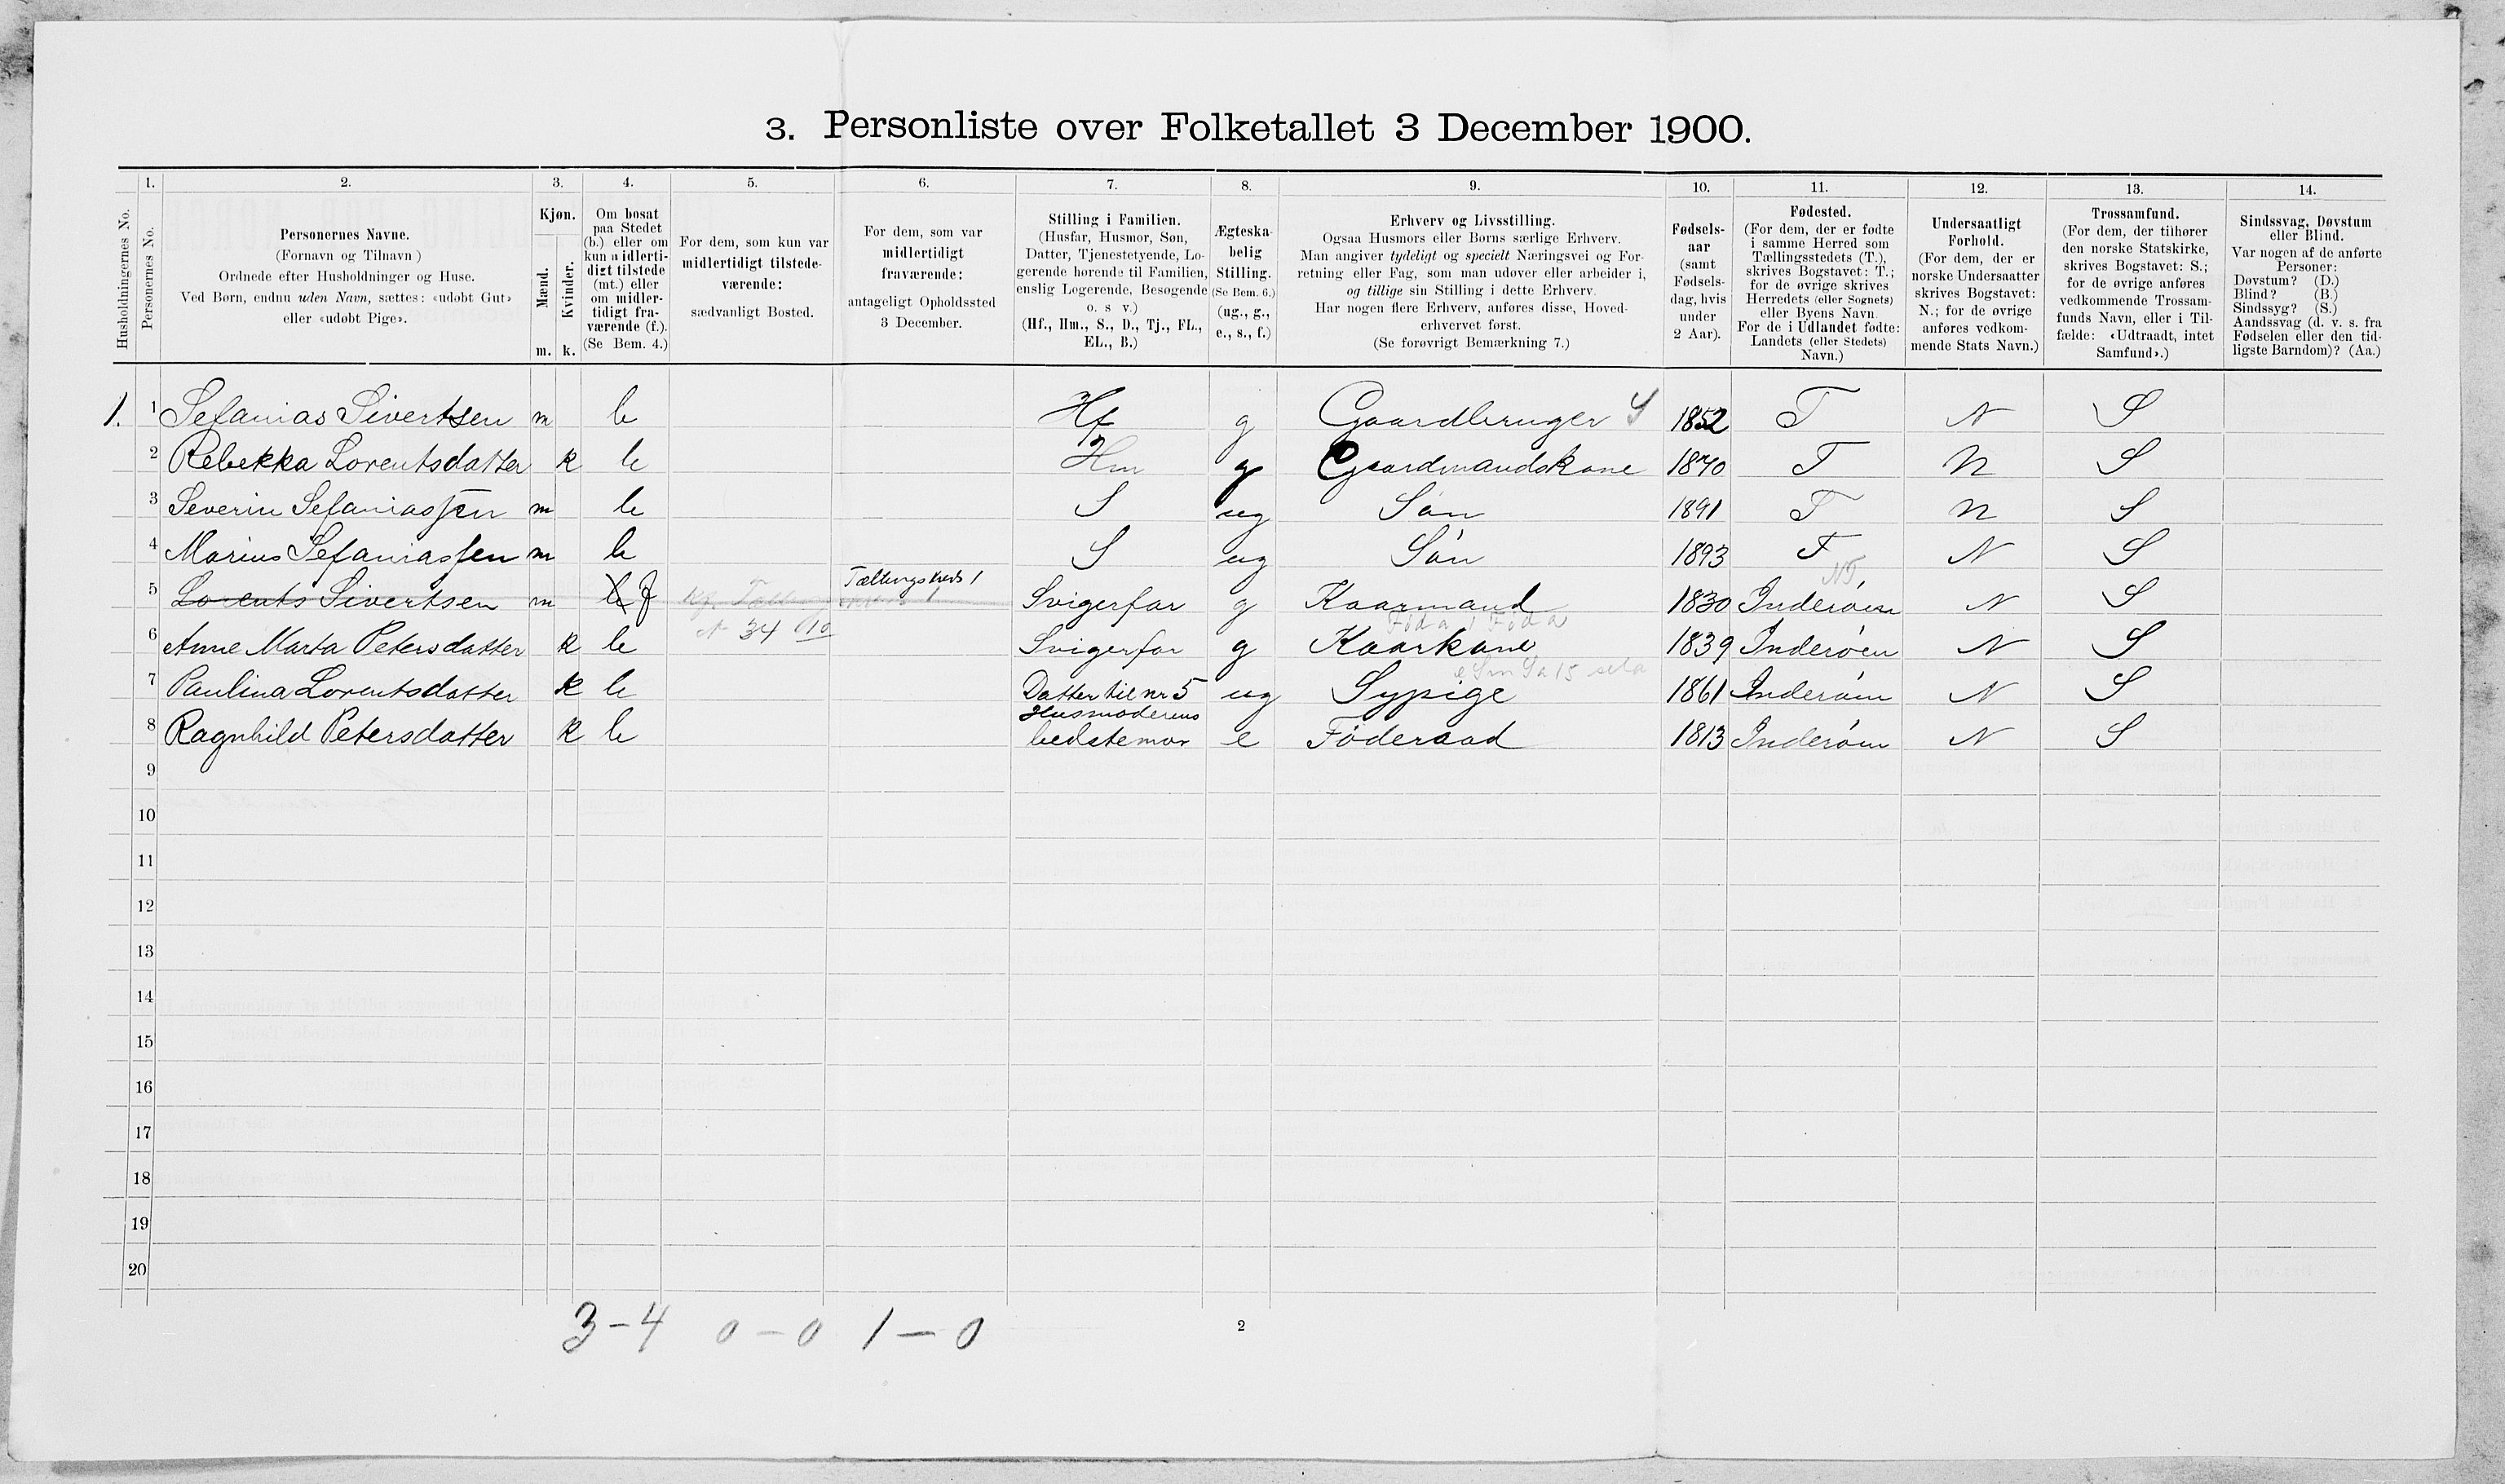 3. Personliste over Folketallet 3 December 1900.
1. 2. 3. 4. 5. 6. 7. 8. 9. 10. 11. 12. 13. 14.
Husholdningernes No.
Personernes No.
Personernes Navne.
(Fornavn og Tilnavn )
Ordnede efter Husholdninger og Huse.
Ved Børn, endnu uden Navn, sættes: «udøbt Gut»
eller «udøbt Pige».
Kjøn.
Mænd.
Kvinder.
m. k.
Om bosat
paa Stedet
(b.) eller om
kun midlerti-
digt tilstede
(mt.) eller
om midler-
tidigt fra-
værende (f.).
(Se Bem. 4.)
For dem, som kun var
midlertidigt tilstede-
værende:
sædvanligt Bosted.
For dem, som var
midlertidigt
fraværende:
antageligt Opholdssted
3 December.
Stilling i Familien.
(Husfar, Husmor, Søn,
Datter, Tjenestetyende, Lo-
gerende hørende til Familien,
enslig Logerende, Besøgende
o. s v.)
(Hf., Hm., S., D., Tj., FL.,
EL., B.)
Ægteska-
belig
Stilling.
(Se Bem. 6.)
(ug., g.,
e., s., f.)
Erhverv og Livsstilling.
Ogsaa Husmors eller Børns særlige Erhverv.
Man angiver tydeligt og specielt Næringsvei og For-
retning eller Fag, som man udøver eller arbeider i,
og tillige sin Stilling i dette Erhverv.
Har nogen flere Erhverv, anføres disse, Hoved-
erhvervet først.
(Se forøvrigt Bemærkning 7.)
Fødsels-
aar
(samt
Fødsels-
dag, hvis
under
2 Aar).
Fødested.
(For dem, der er fødte
i samme Herred som
Tællingsstedets (T.),
skrives Bogstavet: T.;
for de øvrige skrives
Herredets (eller Sognets)
eller Byens Navn.
For de i Udlandet fødte:
Landets (eller Stedets)
Navn.)
Undersaatligt
Forhold.
(For dem, der er
norske Undersaatter
skrives Bogstavet:
N.; for de øvrige
anføres vedkom-
mende Stats Navn.)
Trossamfund.
(For dem, der tilhører
den norske Statskirke,
skrives Bogstavet: S.;
for de øvrige anføres
vedkommende Trossam-
funds Navn, eller i Til-
fælde: «Udtraadt, intet
Samfund».)
Sindssvag, Døvstum
eller Blind.
Var nogen af de anførte
Personer:
Døvstum? (D.)
Blind? (B.)
Sindssyg? (S.)
Aandssvag (d. v. s. fra
Fødselen eller den tid-
ligste Barndom)? (Aa.)
1. 1 Sefanias Sivertsen m b Hf g Gaardbruger 1852 T N S
2 Rebekka Lorentsdatter k b Hm g Gaardmandskone 1870 T N S
3 Severin Sefaniassen m b S ug Søn 1891 T N S
4 Marius Sefaniassen m b S ug Søn 1893 T N S
NT
5 Lorents Sivertsen m b f Tællingskreds 1 Svigerfar g Kaarmand 1830 Inderøen N S
34 10
6 Anne Marta Petersdatter k b Svigerfar g Kaarkone 1839 Inderøen N S
7 Paulina Lorentsdatter k b Datter til nr 5 ug Sypige 1861 Inderøen N S
8 Ragnhild Petersdatter k b Husmoderens bedstemor e Føderaad 1813 Inderøen N S
9
10
11
12
13
14
15
16
17
18
19
20
3-4 0-0 1-0
2